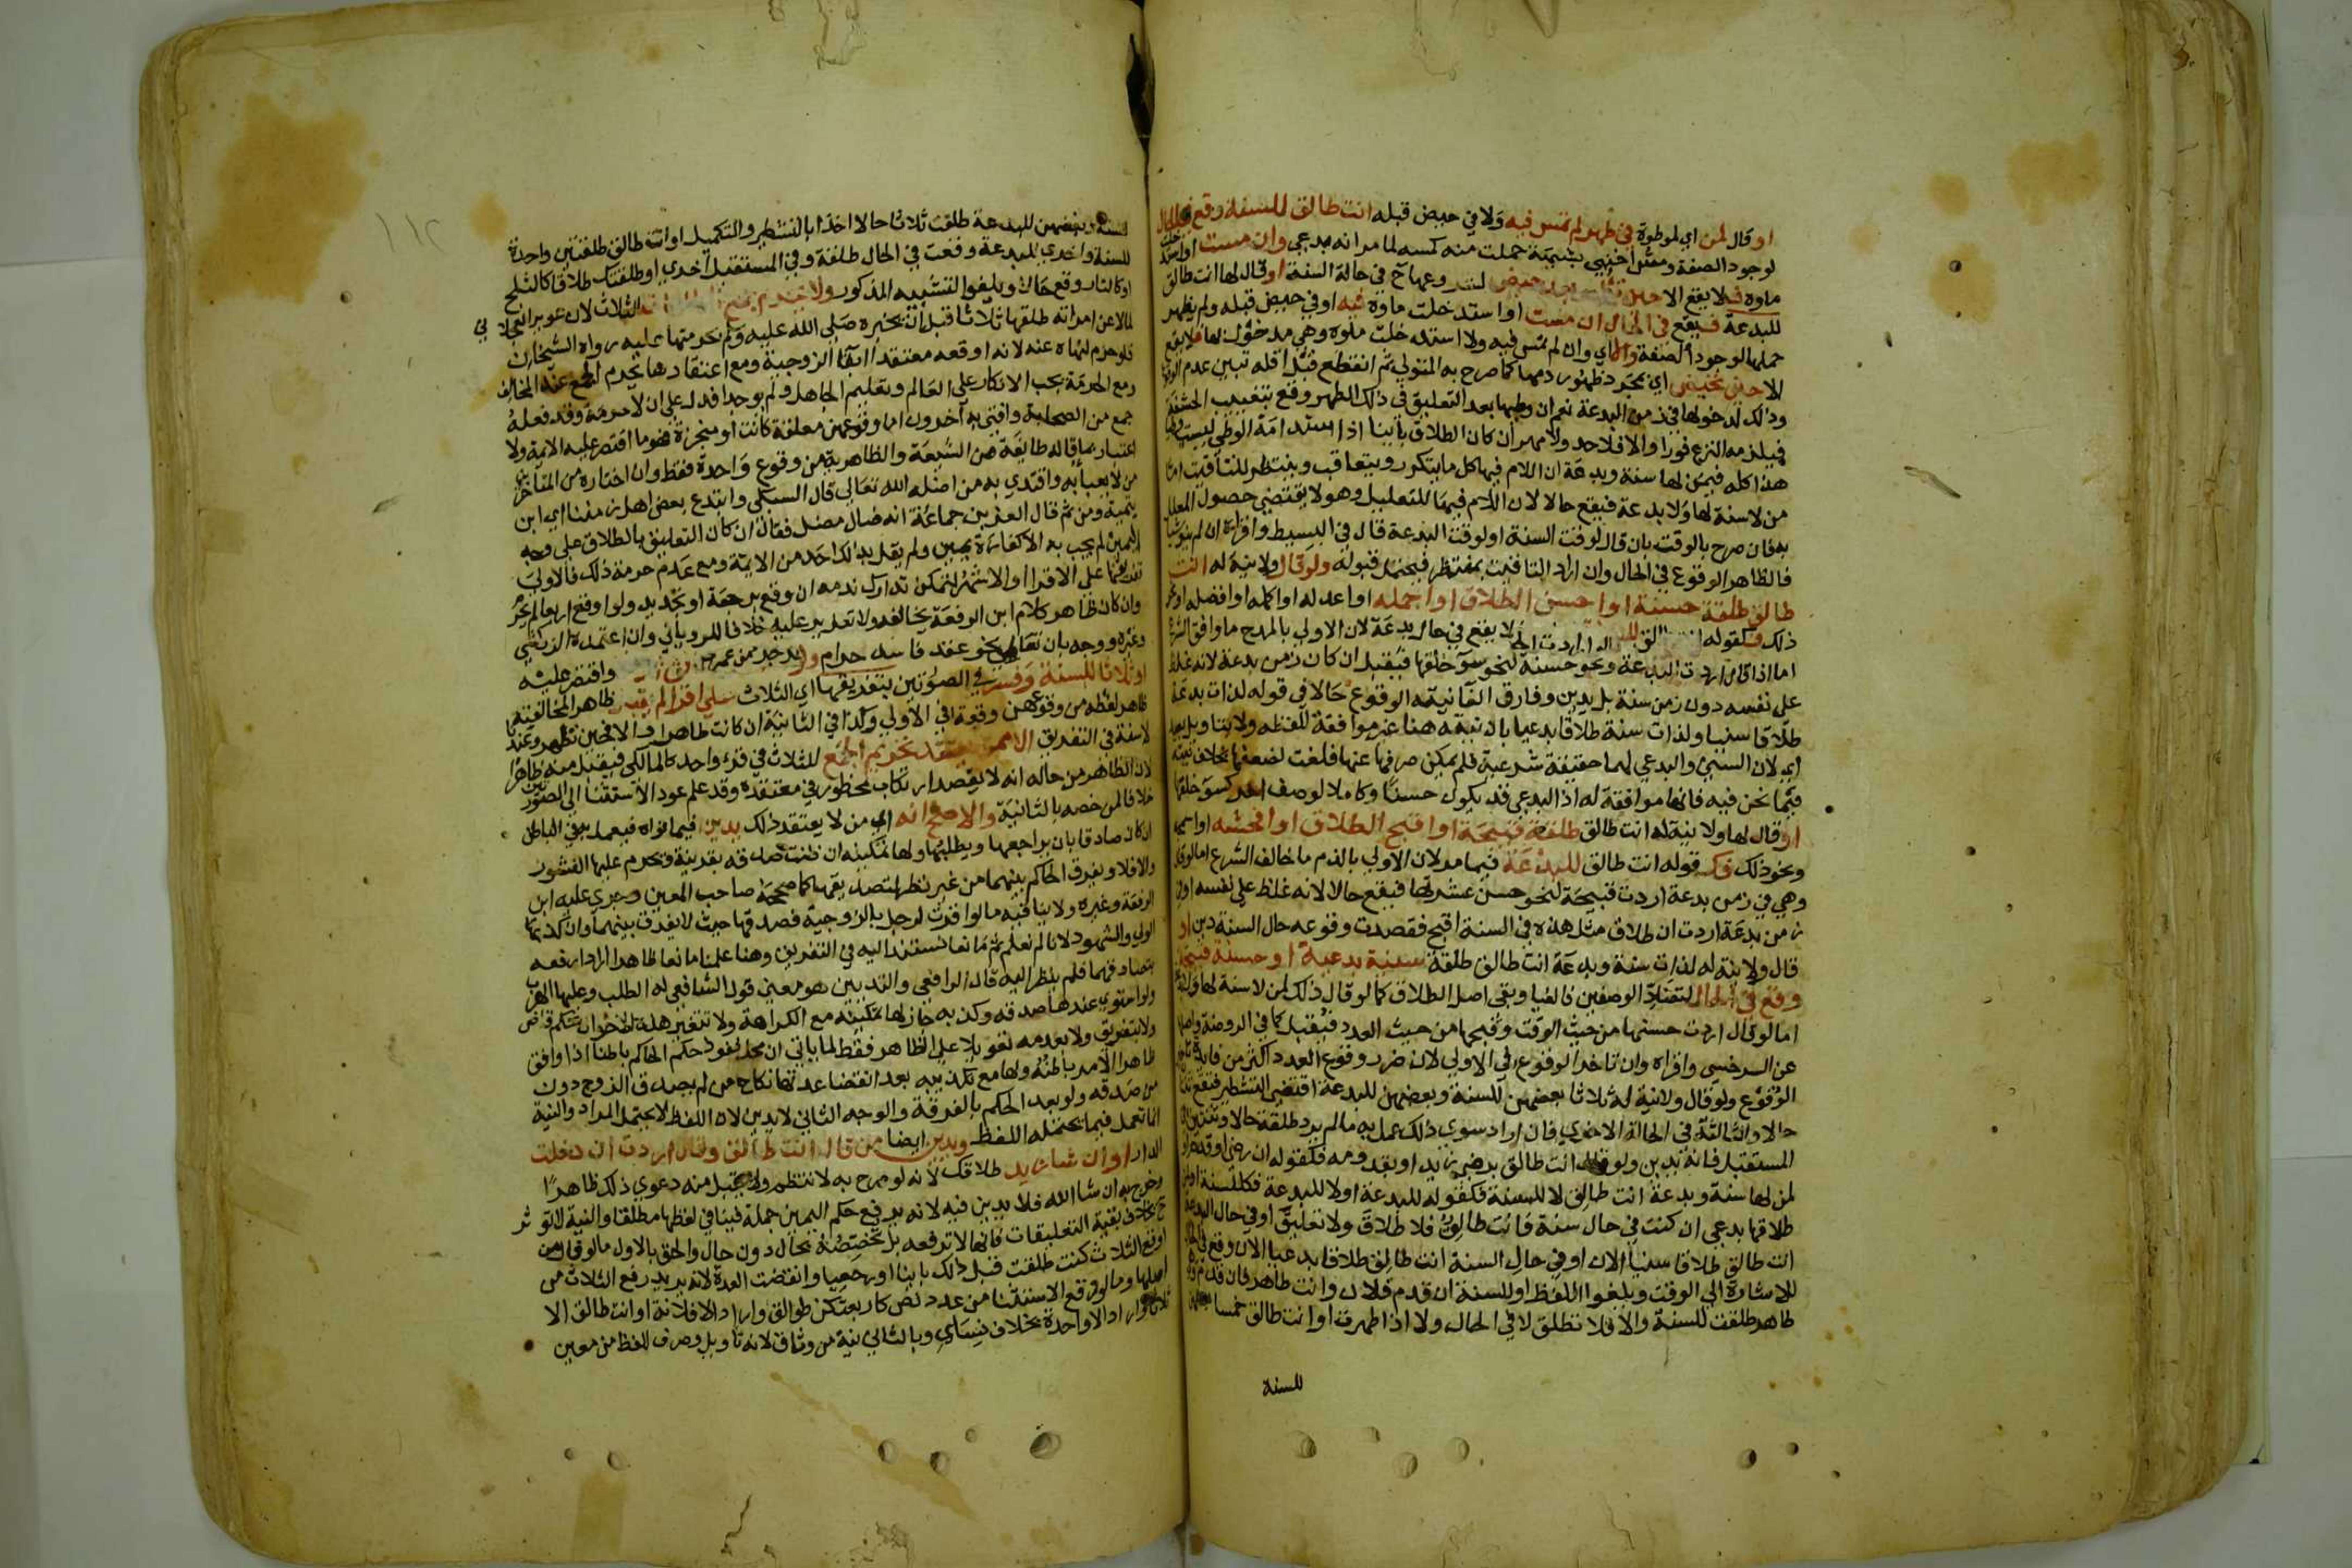 او قال لمن اي لموطوة في طهر لم تمس فيه ولا في حيض قبله انت طالق للسنة وقع في الحال
لوجود الصفة ومس اجنبي بشبهة حملت منه كمسه لما مر انه بدعي وان مست او استدخلت
ماوه فيه فلا يقع الا حين تطهر بعد حيض لشروعها ح في حالة السنة او قال لها انت طالق
للبدعة فيقع في الحال ان مست او استدخلت ماوه فيه او في حيض قبله ولم يظهر
حملها لوجود الصفة والا اي وان لم تمس فيه ولا استدخلت ماوه وهي مدخول بها فلا يقع
الا حين تحيض اي بمجرد ظهور دمها كما صرح به المتولي ثم انقطع قبل اقله تبين عدم الوقوع
وذلك لدخولها في زمن البدعة نعم ان وطيها بعد التعليق في ذلك الطهر وقع بتغييب الحشفة
فيلزمه النزع فورا والا فلا حد ولا مهر ان كان الطلاق باينا اذ استدامة الوطي ليست
هذا كله فيمن لها سنة وبدعة ان اللام فيها كل ما يتكرر ويتعاقب وينتظر للتاقيت اما
من لا سنة لها ولا بدعة فيقع حالا لان اللام فيها للتعليل وهو لا يقتضي حصول المعلل
به فان صرح بالوقت بان قال لوقت السنة او لوقت البدعة قال في البسيط واقراه ان لم ينو شيا
فالظاهر الوقوع في الحال وان اراد التاقيت بمنتظر فيحتمل قبوله ولو قال ولا نية له انت
طالق طلقة حسنة او احسن الطلاق او اجمله او اعدله او اكمله او افضله او نحو
ذلك فكقوله انت طالق للسنة فلا يقع في حال بدعة لان الاولي بالمدح ما وافق الشرع
اما اذا قال اردت البدعة ونحو حسنة لنحو سو خلقها فيقبل ان كان زمن بدعة لانه غلظ
علي نفسه دون زمن سنة بل يدين وفارق الغا نيته الوقوع حالا في قوله لذات بدعة
طلاقا سنيا ولذات سنة طلاقا بدعيا بان نيته هنا غير موافقة للفظه ولا بتاويل بعيد
اي لان السني والبدعي لهما حقيقة شرعية فلم يمكن صرفها عنها فلغت لضعفها بخلاف نيته
فيما نحن فيه فانها موافقة له اذ البدعي قد يكون حسنا وكاملا لوصف اخر كسو خلقها
او قال لها ولا نية له انت طالق طلقة قبيحة او اقبح الطلاق او افحشه او اسمجه
ونحو ذلك فكقوله انت طالق للبدعة فيما مر لان الاولي بالذم ما خالف الشرع اما لو قال
وهي في زمن بدعة اردت قبيحة لنحو حسن عشرتها فيقع حالا لانه غلظ علي نفسه او في
زمن بدعة اردت ان طلاق مثل هذه في السنة اقبح فقصدت وقوعه حال السنة دين او
قال ولا نية له لذات سنة وبدعة انت طالق طلقة سنية بدعية او حسنة قبيحة
وقع في الحال لتضاد الوصفين فالغيا وبقي اصل الطلاق كما لو قال ذلك لمن لا سنة لها ولا
اما لو قال اردت حسنها من حيث الوقت وقبحها من حيث العدد فيقبل كما في الروضة واصلها
عن السرخسي واقراه وان تاخر الوقوع الي الاولي لان ضرر وقوع العدد اكثر من فايدة
الوقوع ولو قال ولا نية له ثلاثا بعضهن للسنة وبعضهن للبدعة اقتضي التشطير فتقع ثنتان
حالا والثالثة في الحالة الاخري فان اراد سوي ذلك عمل به ما لم يرد طلقة حالا وثنتين في
المستقبل فانه يدين ولو قال انت طالق برضي زيد او بقدومه فكقوله ان رضي او قدم او
لمن لها سنة وبدعة انت طالق لا للسنة فكقوله للبدعة او لا للبدعة فكللسنة او لمن
طلاقها بدعي ان كنت في حال سنة فانت طالق فلا طلاق ولا تعليق او في حال البدعة
انت طالق طلاقا سنيا الان او في حال السنة انت طالق طلاقا بدعيا الان وقع في الحال
للاشارة الي الوقت ويلغوا اللفظ او للسنة ان قدم فلان وانت طاهر فان قدم وهي
طاهر طلقت للسنة والا فلا تطلق لا في الحال ولا اذا طهرت او انت طالق خمسا بعضهن
للسنة
١١٢
للسنة وبعضهن للبدعة طلقت ثلاثا حالا اخذا بالتشطير والتكميل او انت طالق طلقتين واحدة
للسنة واخري للبدعة وقعت في الحال طلقة وفي المستقبل اخري او طلقتك طلاقا كالثلج
او كالنار وقع حالا ويلغوا التشبيه المذكور ولا يحرم جمع الطلقات الثلاث لان عويمرا العجلاني
لما لاعن امراته طلقها ثلاثا قبل ان يخبره صلي الله عليه وسلم بحرمتها عليه رواه الشيخان
فلو حرم لنهاه عنه لانه اوقعه معتقدا ابقا الزوجية ومع اعتقادها يحرم الجمع عند المخالف
ومع الحرمة يجب الانكار علي العالم وتعليم الجاهل ولم يوجدا فدل علي ان لا حرمة وقد فعله
جمع من الصحابة وافتي به آخرون اما وقوعهن معلقة كانت او منجزة فهو ما اقتصر عليه الايمة ولا
اعتبار بما قاله طايفة من الشيعة والظاهرية من وقوع واحدة فقط وان اختاره من المتاخرين
من لا يعبا به واقتدي به من اضله الله تعالي قال السبكي وابتدع بعض اهل زمننا اي ابن
تيمية ومن ثم قال العز بن جماعة انه ضال مضل فقال ان كان التعليق بالطلاق علي وجه
اليمين لم يجب به الا كفارة يمين ولم يقل بذلك احد من الايمة ومع عدم حرمة ذلك فالاولي
تفريقها علي الاقرا او الاشهر ليتمكن تدارك ندمه ان وقع برجعة او تجديد ولو اوقع اربعا لم يحرم
وان كان ظاهر كلام ابن الرفعة يخالفه ولا تعزير عليه خلافا للروياني وان اعتمده الزركشي
وغيره ووجه بان تعاطي نحو عقد فاسد حرام ولو
او ثلاثا للسنة وفسر في الصورتين بتفريقها اي الثلاث علي اقرا لم يقبل ظاهرا لمخالفته
ظاهر لفظه من وقوعهن دفعة في الاولي وكذا في الثانية ان كانت طاهرا والا فحين تطهر وعندنا
لا سنة في التفريق الا ممن يعتقد تحريم الجمع للثلاث في قرء واحد كالمالكي فيقبل منه ظاهرا
لان الظاهر من حاله انه لا يقصد ارتكاب محظور في معتقده وقد علم عود الاستثنا الي الصورتين
خلافا لمن خصه بالثانية والاصح انه اي من لا يعتقد ذلك يدين فيما نواه فيعمل به في الباطن
ان كان صادقا بان يراجعها ويطلبها ولها تمكينه ان ظنت صدقه بقرينة وتحرم عليها النشوز
والا فلا ويفرق الحاكم بينهما من غير نظر لتصديقها كما صححه صاحب المعين وجري عليه ابن
الرفعة وغيره ولا ينافيه ما لو اقرت لرجل بالزوجية فصدقها حيث لا يفرق بينهما وان كذبها
الولي والشهود لانا لم نعلم ثم مانعا نستند اليه في التفريق وهنا علمنا مانعا ظاهرا اراد رفعه
بتصادقهما فلم ينظر اليه قال الرافعي والتديين هو معني قول الشافعي له الطلب وعليها الهرب
ولو استوي عندها صدقه وكذبه جاز لها تمكينه مع الكراهة ولا تتغير هذه الاحوال بحكم قاض
ولا بتفريق ولا بعدمه تعويلا علي الظاهر فقط لما ياتي ان محل نفوذ حكم الحاكم باطنا اذا وافق
ظاهر الامر باطنه ولها مع تكذيبه بعد انقضا عدتها نكاح من لم يصدق الزوج دون
من صدقه ولو بعد الحكم بالفرقة والوجه الثاني لا يدين لان اللفظ لا يحتمل المراد والنية
انما تعمل فيما يحتمله اللفظ ويدين ايضا من قال انت طالق وقال اردت ان دخلت
الدار او ان شا زيد طلاقك لانه لو صرح به لانتظم ولا يقبل منه دعوي ذلك ظاهرا
وخرج به ان شا الله فلا يدين فيه لانه يرفع حكم اليمين جملة فينافي لفظها مطلقا والنية لا تؤثر
ح بخلاف بقية التعليقات فانها لا ترفعه بل تخصصه بحال دون حال والحق بالاول ما لو قال من
اوقع الثلاث كنت طلقت قبل ذلك باينا او رجعيا وانقضت العدة لانه يريد رفع الثلاث من
اصلها وما لو رفع الاستثنا من عدد نص كاربعتكن طوالق واراد الا فلانة او انت طالق
ثلاثا واراد الا واحدة بخلاف نسايي وبالثاني نية من وثاق لانه تاويل وصرف للفظ من معين